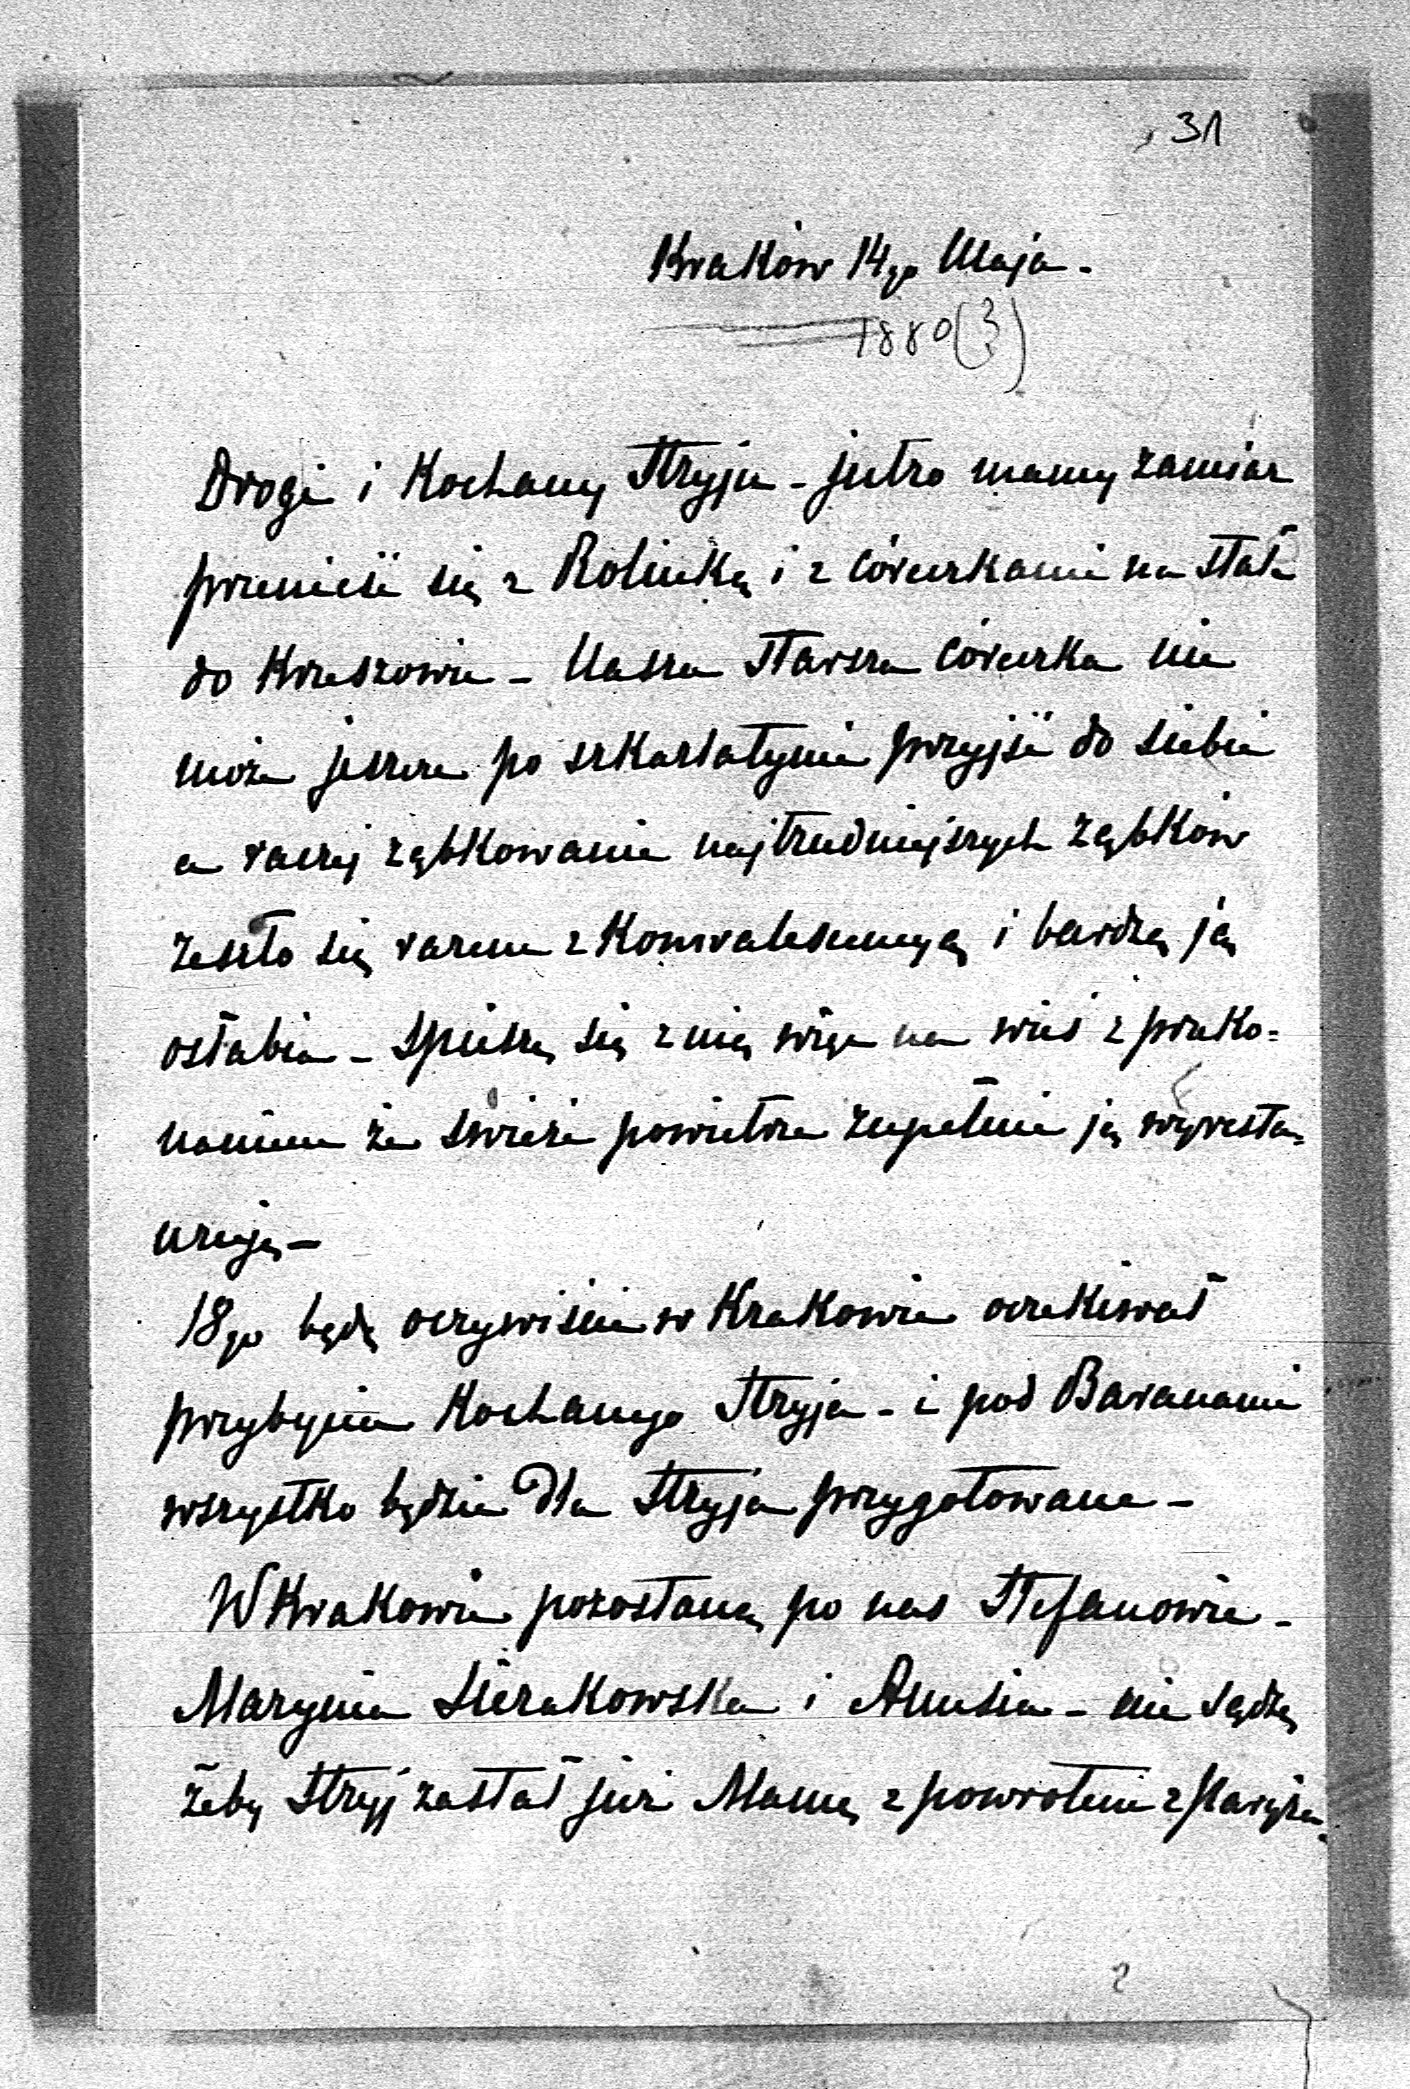 31
Kraków 14go Maja.
1880(?)
Drogi i Kochany Stryju - jutro mamy zamiar
przenieść się z Rolinką i z córeczkami na stałe
do Krzeszowic - Nasza starsza córeczka nie
może jeszcze po szkarlatynie przyjść do siebie
a raczej ząbkowanie najtrudniejszych ząbków
zeszło się razem z Konwalescencyą i bardzo ją
osłabia - Spieszę się z nią więc na wieś z przeko=
naniem że świeże powietrze zupełnie ją wyresta=
uruje -
18go będę oczywiście w Krakowie oczekiwał
przybycia Kochanego Stryja - i pod Baranami
wszystko będzie dla Stryja przygotowane -
W Krakowie pozostaną po nas Stefanowie -
Marynia Sierakowska i Anusia - nie sądzę
żeby Stryj zastał już Mamę z powrotem z Paryża.
2